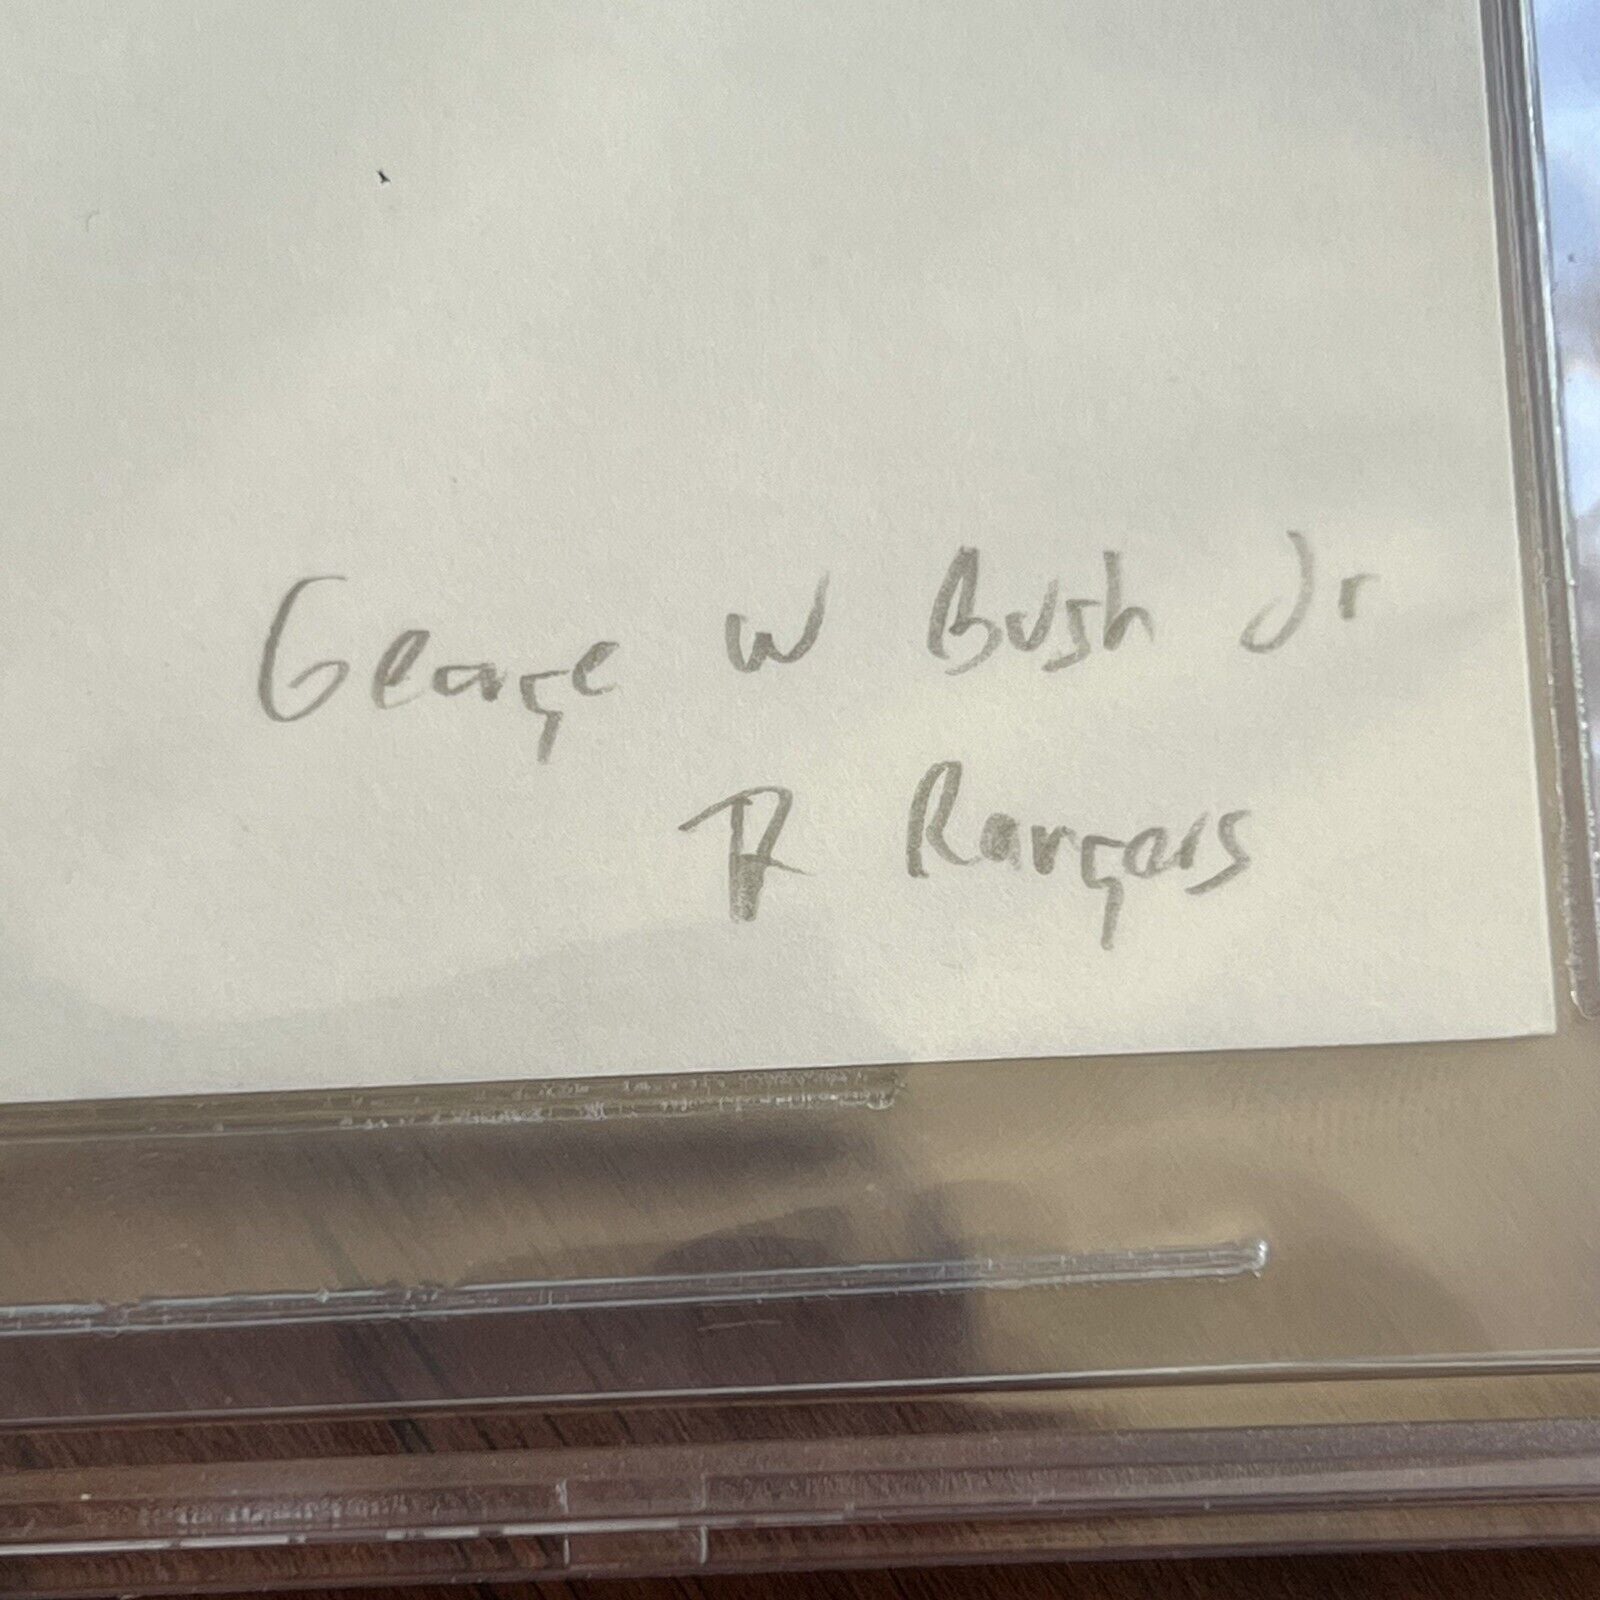 George W Bush Jr
TX Rangers